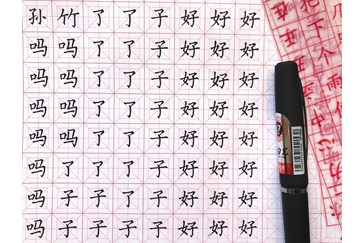 孙竹了了子好好好
吗吗了了子好好好
吗吗了了子好好好
吗吗了了子好好好
吗吗了了子好好好
吗了了了子好好好
吗子子子子好好好
吗子子子子好好好